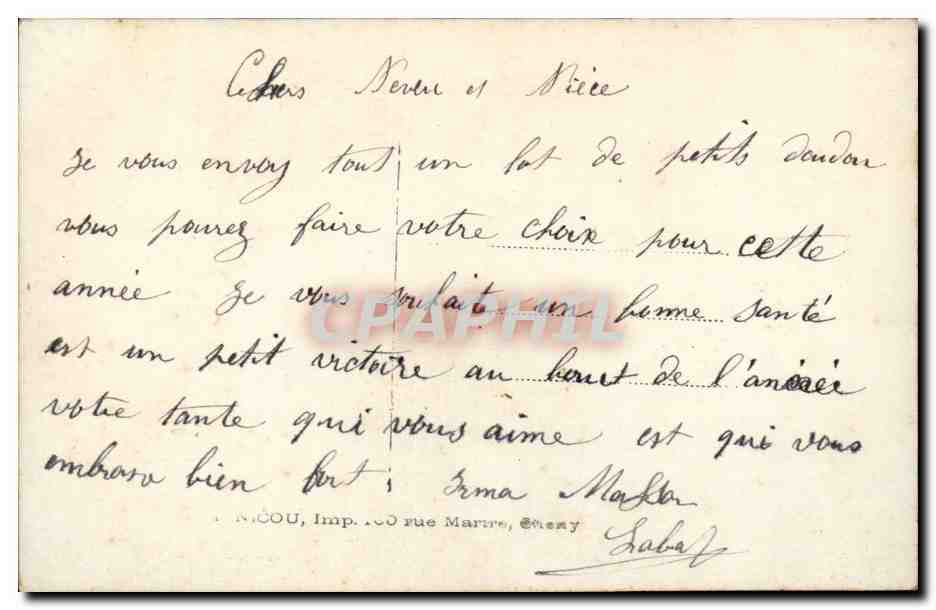 Chers Neveu et Nièce
Je vous envoy tout un lot de petits doudou
vous pourez faire votre choix pour cette
année Je vous souhaite un bonne santé
est un petit victoire au bout de l'année
votre tante qui vous aime est qui vous
embrase bien fort Irma
NICOU, Imp. 100 rue Martre, Clichy
CPAPHIL